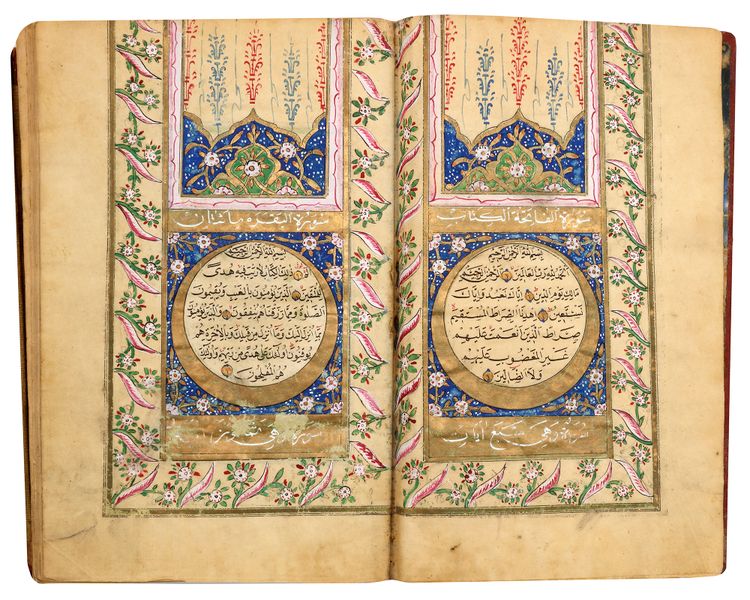 سورة الفاتحة الكتاب
بسم الله الرحمن الرحيم
الحمد لله رب العالمين الرحمن الرحيم
مالك يوم الدين اياك نعبد واياك
نستعين اهدنا الصراط المستقيم
صراط الذين انعمت عليهم
غير المغضوب عليهم
ولا الضالين
وهي سبع ايات
سورة البقره مائتان
بسم الله الرحمن الرحيم
الم ذلك الكتاب لا ريب فيه هدى
للمتقين الذين يؤمنون بالغيب ويقيمون
الصلوة ومما رزقناهم ينفقون والذين يؤمنو
بما انزل اليك وما انزل من قبلك وبالاخرة هم
يوقنون اولئك على هدى من ربهم واولئك
هم المفلحون